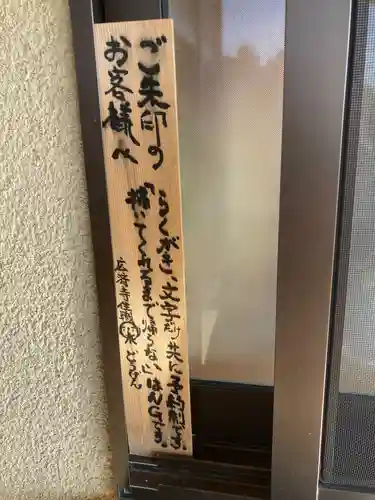 ご朱印の
お客様へ
らくがき文字だけ先に予約制です。
「描いてくれるまで帰らない」はんこです。
広済寺住職
どうげん